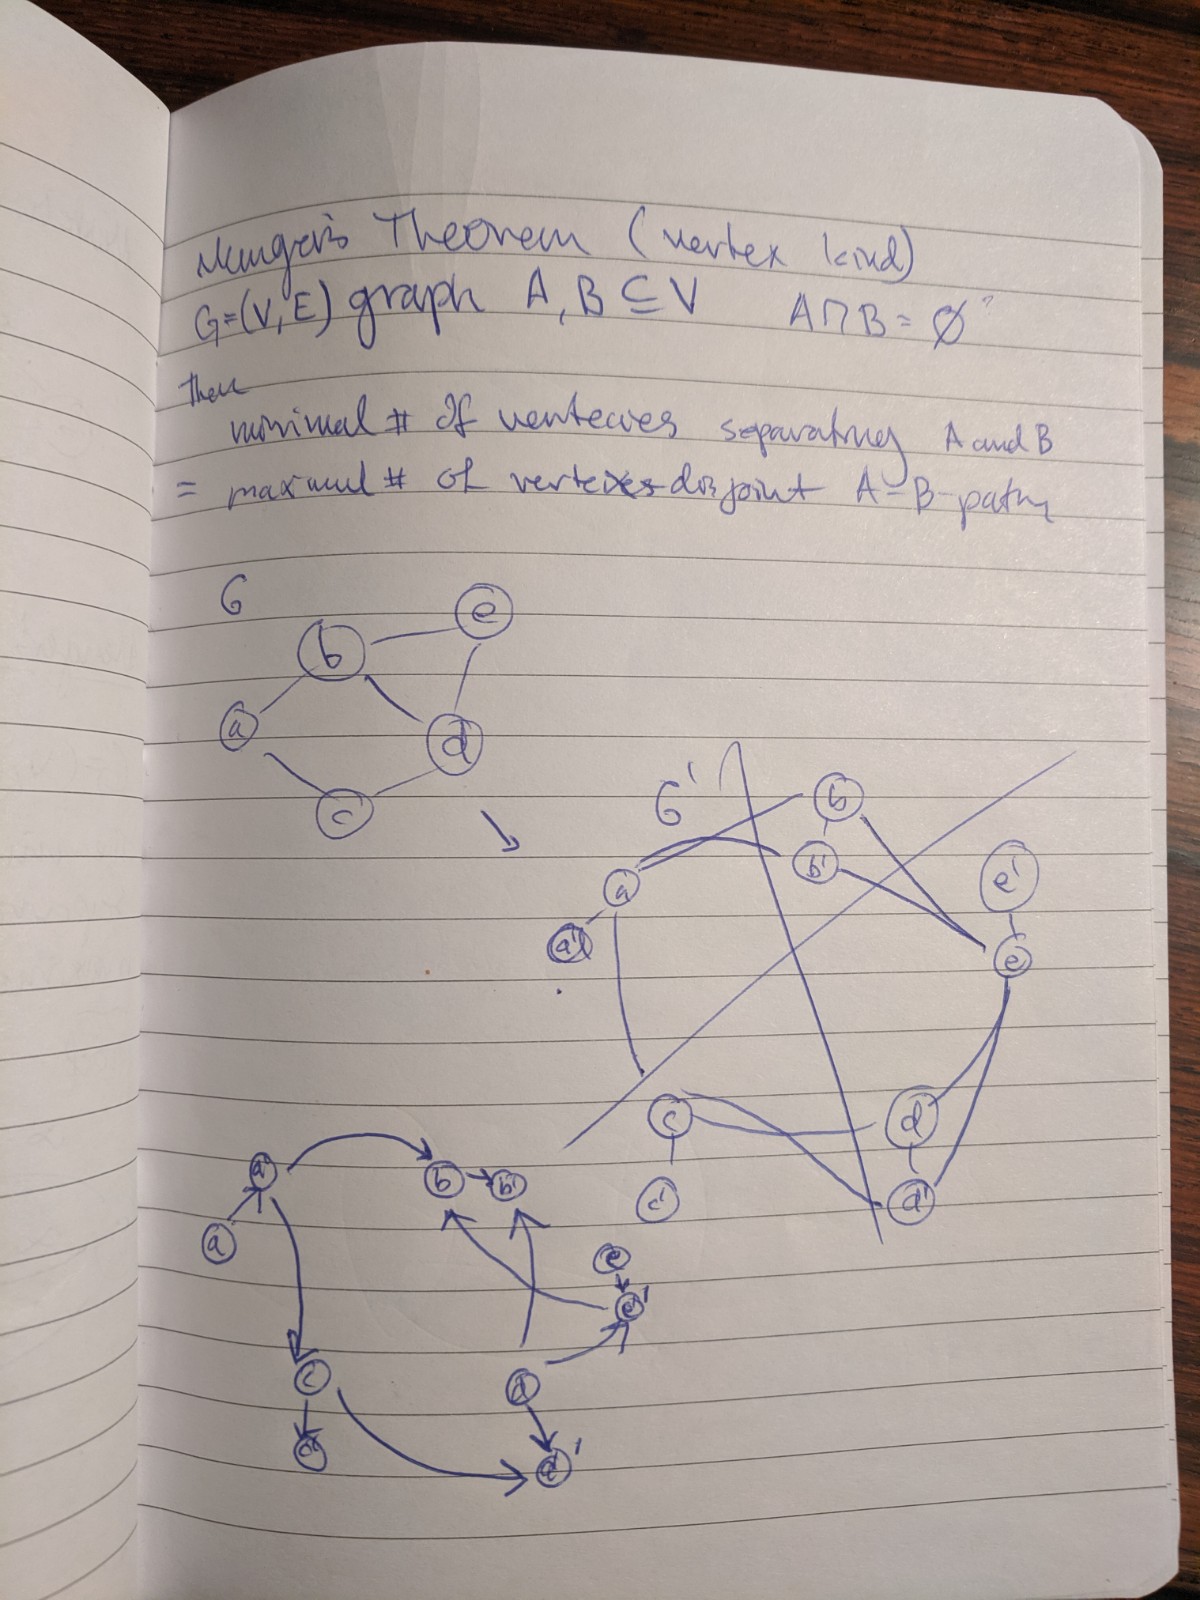 Menger's Theorem (vertex kind)
G=(V,E) graph A, B ⊆ V A∩B = ∅
Then
minimal # of verteces separating A and B
= maximal # of vertex disjoint A-B-paths
G
b e
a d
c
G'
b
a b' e'
a' e
c d
c' d'
a' b b'
a e
e'
c d
d'